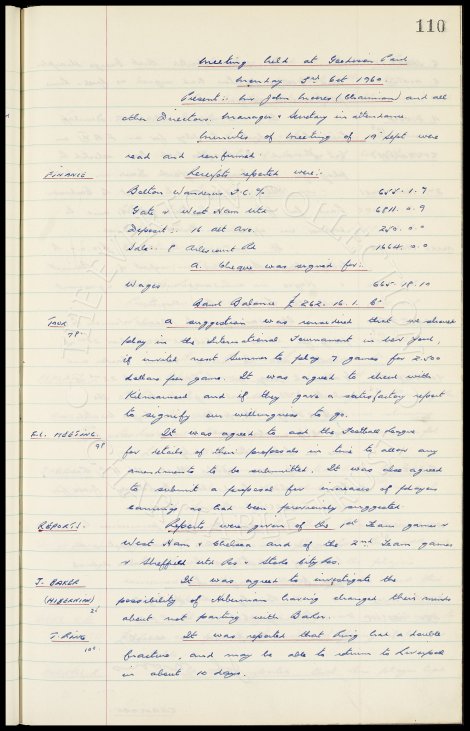 110
Meeting held at Goodison Park
Monday 3rd Oct 1960.
Present:- Mr John Moores (Chairman) and all
other Directors. Manager & Secretary in attendance
Minutes of meeting of 19 Sept were
read and confirmed.
FINANCE Receipts reported were:-
Bolton Wanderers F.C. % 655.1.7
Gate v West Ham Utd 6911.0.9
Deposit:- 16 250.0.0
Sale:- 9 1664.0.0
A Cheque was signed for:-
Wages 665.19.10
Bank Balance £262.16.1.
TOUR A suggestion was considered that we should
79. play in the International Tournament in New York,
if invited next Summer to play 7 games for 2,500
dollars per game. It was agreed to check with
Kilmarnock and if they gave a satisfactory report
to signify our willingness to go.
F.L. MEETING. It was agreed to ask the Football League
98 for details of their proposals in time to allow any
amendments to be submitted. It was also agreed
to submit a proposal for increases of players
earnings as had been previously suggested.
REPORTS. Reports were given of the 1st Team games v
West Ham & Chelsea and of the 2nd Team games
v Sheffield Utd Res & Stoke City Res.
J. BAKER It was agreed to investigate the
(HIBERNIAN) possibility of Hibernian having changed their minds
about not parting with Baker.
T RING It was reported that Ring had a double
100 fracture, and may be able to return to Liverpool
in about 10 days.